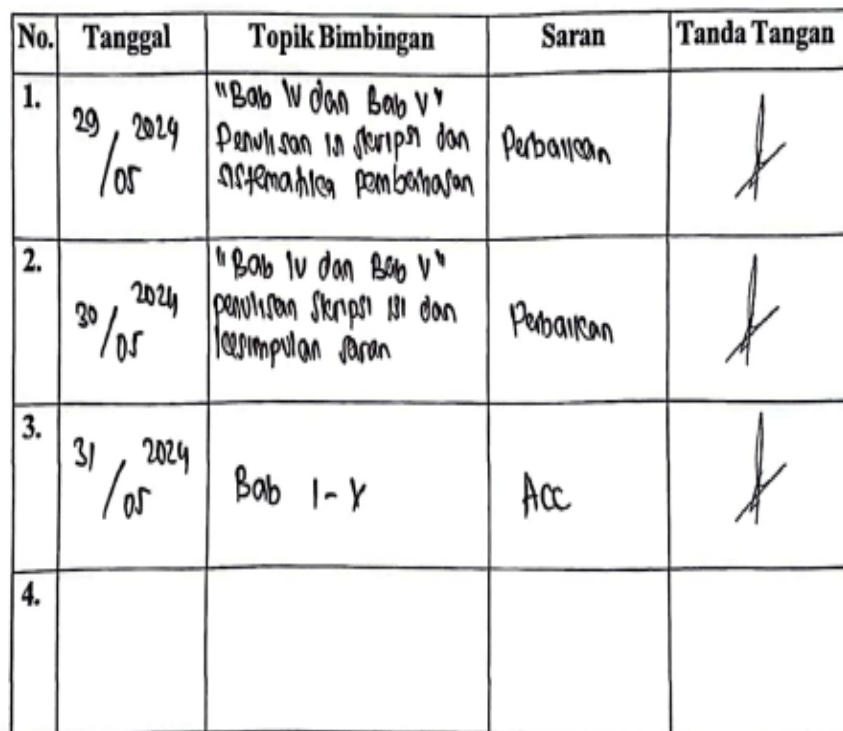 No. Tanggal Topik Bimbingan Saran Tanda Tangan
1.
29/05 2024
"Bab IV dan Bab V"
Penulisan isi skripsi dan
sistematika pembahasan
Perbaikan
2.
30/05 2024
"Bab IV dan Bab V"
penulisan skripsi isi dan
kesimpulan saran
Perbaikan
3.
31/05 2024
Bab I-V
Acc
4.